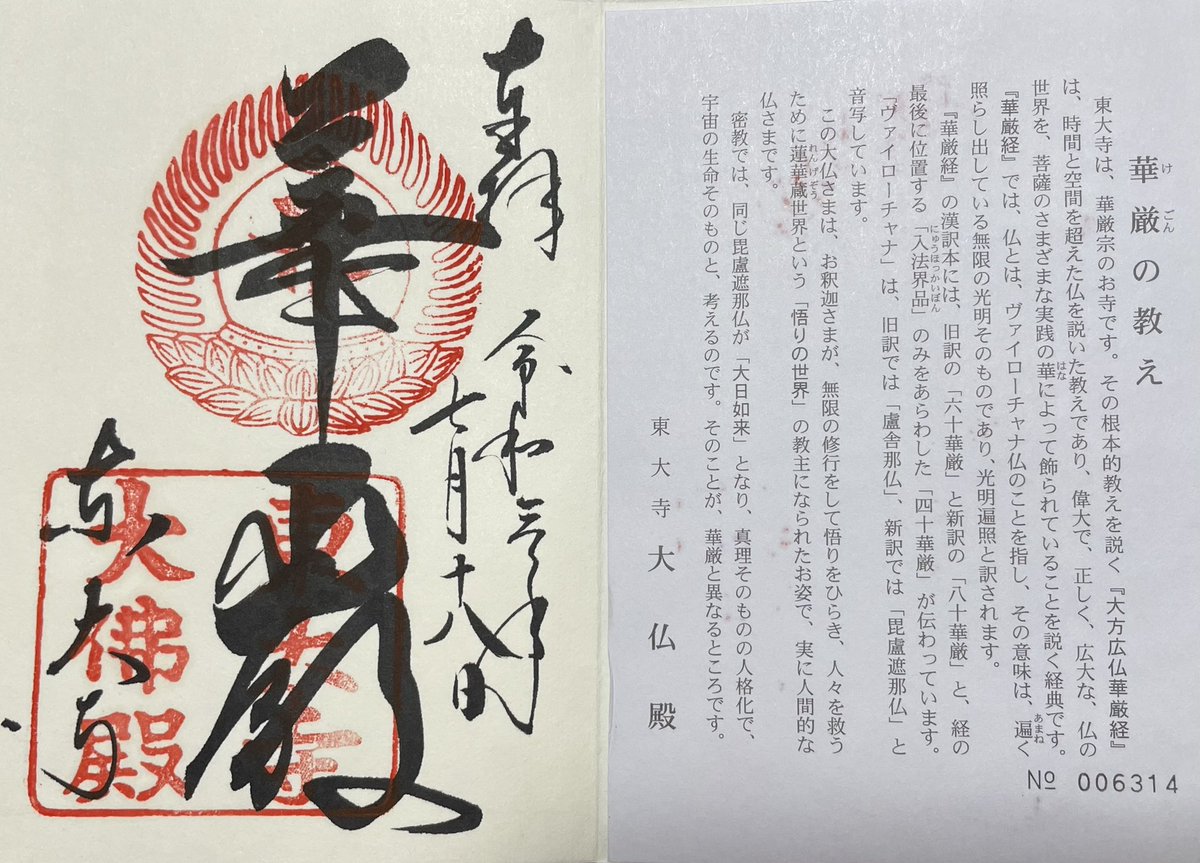 華厳の教え
けごん
東大寺は、華厳宗のお寺です。その根本的教えを説く『大方広仏華厳経』
は、時間と空間を超えた仏を説いた教えであり、偉大で、正しく、広大な、仏の
世界を、菩薩のさまざまな実践の華によって飾られていることを説く経典です。
はな
『華厳経』では、仏とは、ヴァイローチャナ仏のことを指し、その意味は、遍く
あまね
照らし出している無限の光明そのものであり、光明遍照と訳されます。
『華厳経』の漢訳本には、旧訳の「六十華厳」と新訳の「八十華厳」と、経の
最後に位置する「入法界品」のみをあらわした「四十華厳」が伝わっています。
にゅうほっかいぼん
「ヴァイローチャナ」は、旧訳では「盧舎那仏」、新訳では「毘盧遮那仏」と
音写しています。
この大仏さまは、お釈迦さまが、無限の修行をして悟りをひらき、人々を救う
ために蓮華蔵世界という「悟りの世界」の教主になられたお姿で、実に人間的な
れんげぞう
仏さまです。
密教では、同じ毘盧遮那仏が「大日如来」となり、真理そのものの人格化で、
宇宙の生命そのものと、考えるのです。そのことが、華厳と異なるところです。
東大寺大仏殿
№ 006314
奉拝
令和三年
七月十八日
華嚴
東大寺
東大寺
大佛殿